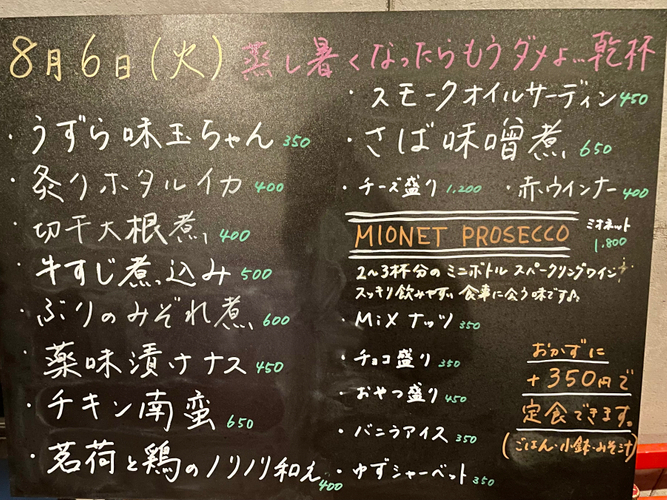 8月6日(火) 蒸し暑くなったらもうダメょ…乾杯
・うずら味玉ちゃん 350
・炙りホタルイカ 400
・切干大根煮 400
・牛すじ煮込み 500
・ぶりのみぞれ煮 600
・薬味漬けナス 450
・チキン南蛮 650
・茗荷と鶏のノリノリ和え 400
・スモークオイルサーディン 450
・さば味噌煮 650
・チーズ盛り 1,200 ・赤ウインナー 400
MIONET PROSECCO ミオネット 1,800
2〜3杯分のミニボトルスパークリングワイン
スッキリ飲みやすい 食事に合う味です♪
・MiXナッツ 350
・チョコ盛り 350
・おやつ盛り 450
・バニラアイス 350
・ゆずシャーベット 350
おかずに
+350円で
定食できます。
(ごはん・小鉢・みそ汁)